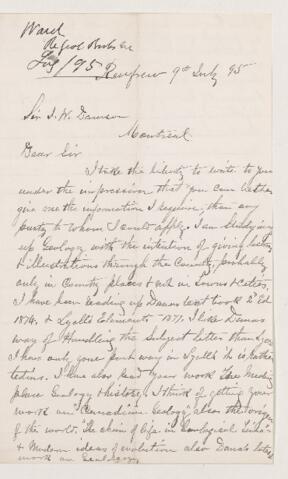 Ward
Re Geol Books &c
July / 95
Renfrew 9th July 95
Sir J. W. Dawson
Montreal
Dear Sir
I take the liberty to write to you
under the impression that you can better
give me the information I require, than any
party to whom I could apply. I am studying
up Geology with the intention of giving
& illustrations through the Country, probably
only in Country places & not in Towns & Cities.
I have been reading up Danas text book 2nd Ed
1874. & Lyells Elements 1871. I like Danas
way of Handling the Subject better than Lyell
I have only gone part way in Lyell he is rather
tedious. I have also read your work The Meeting
place Geology & history. I think of getting your
work on Canadian Geology, also the Origin
of the world. The chain of life in Geological time
& Modern ideas of evolution also Danas
work on Geology